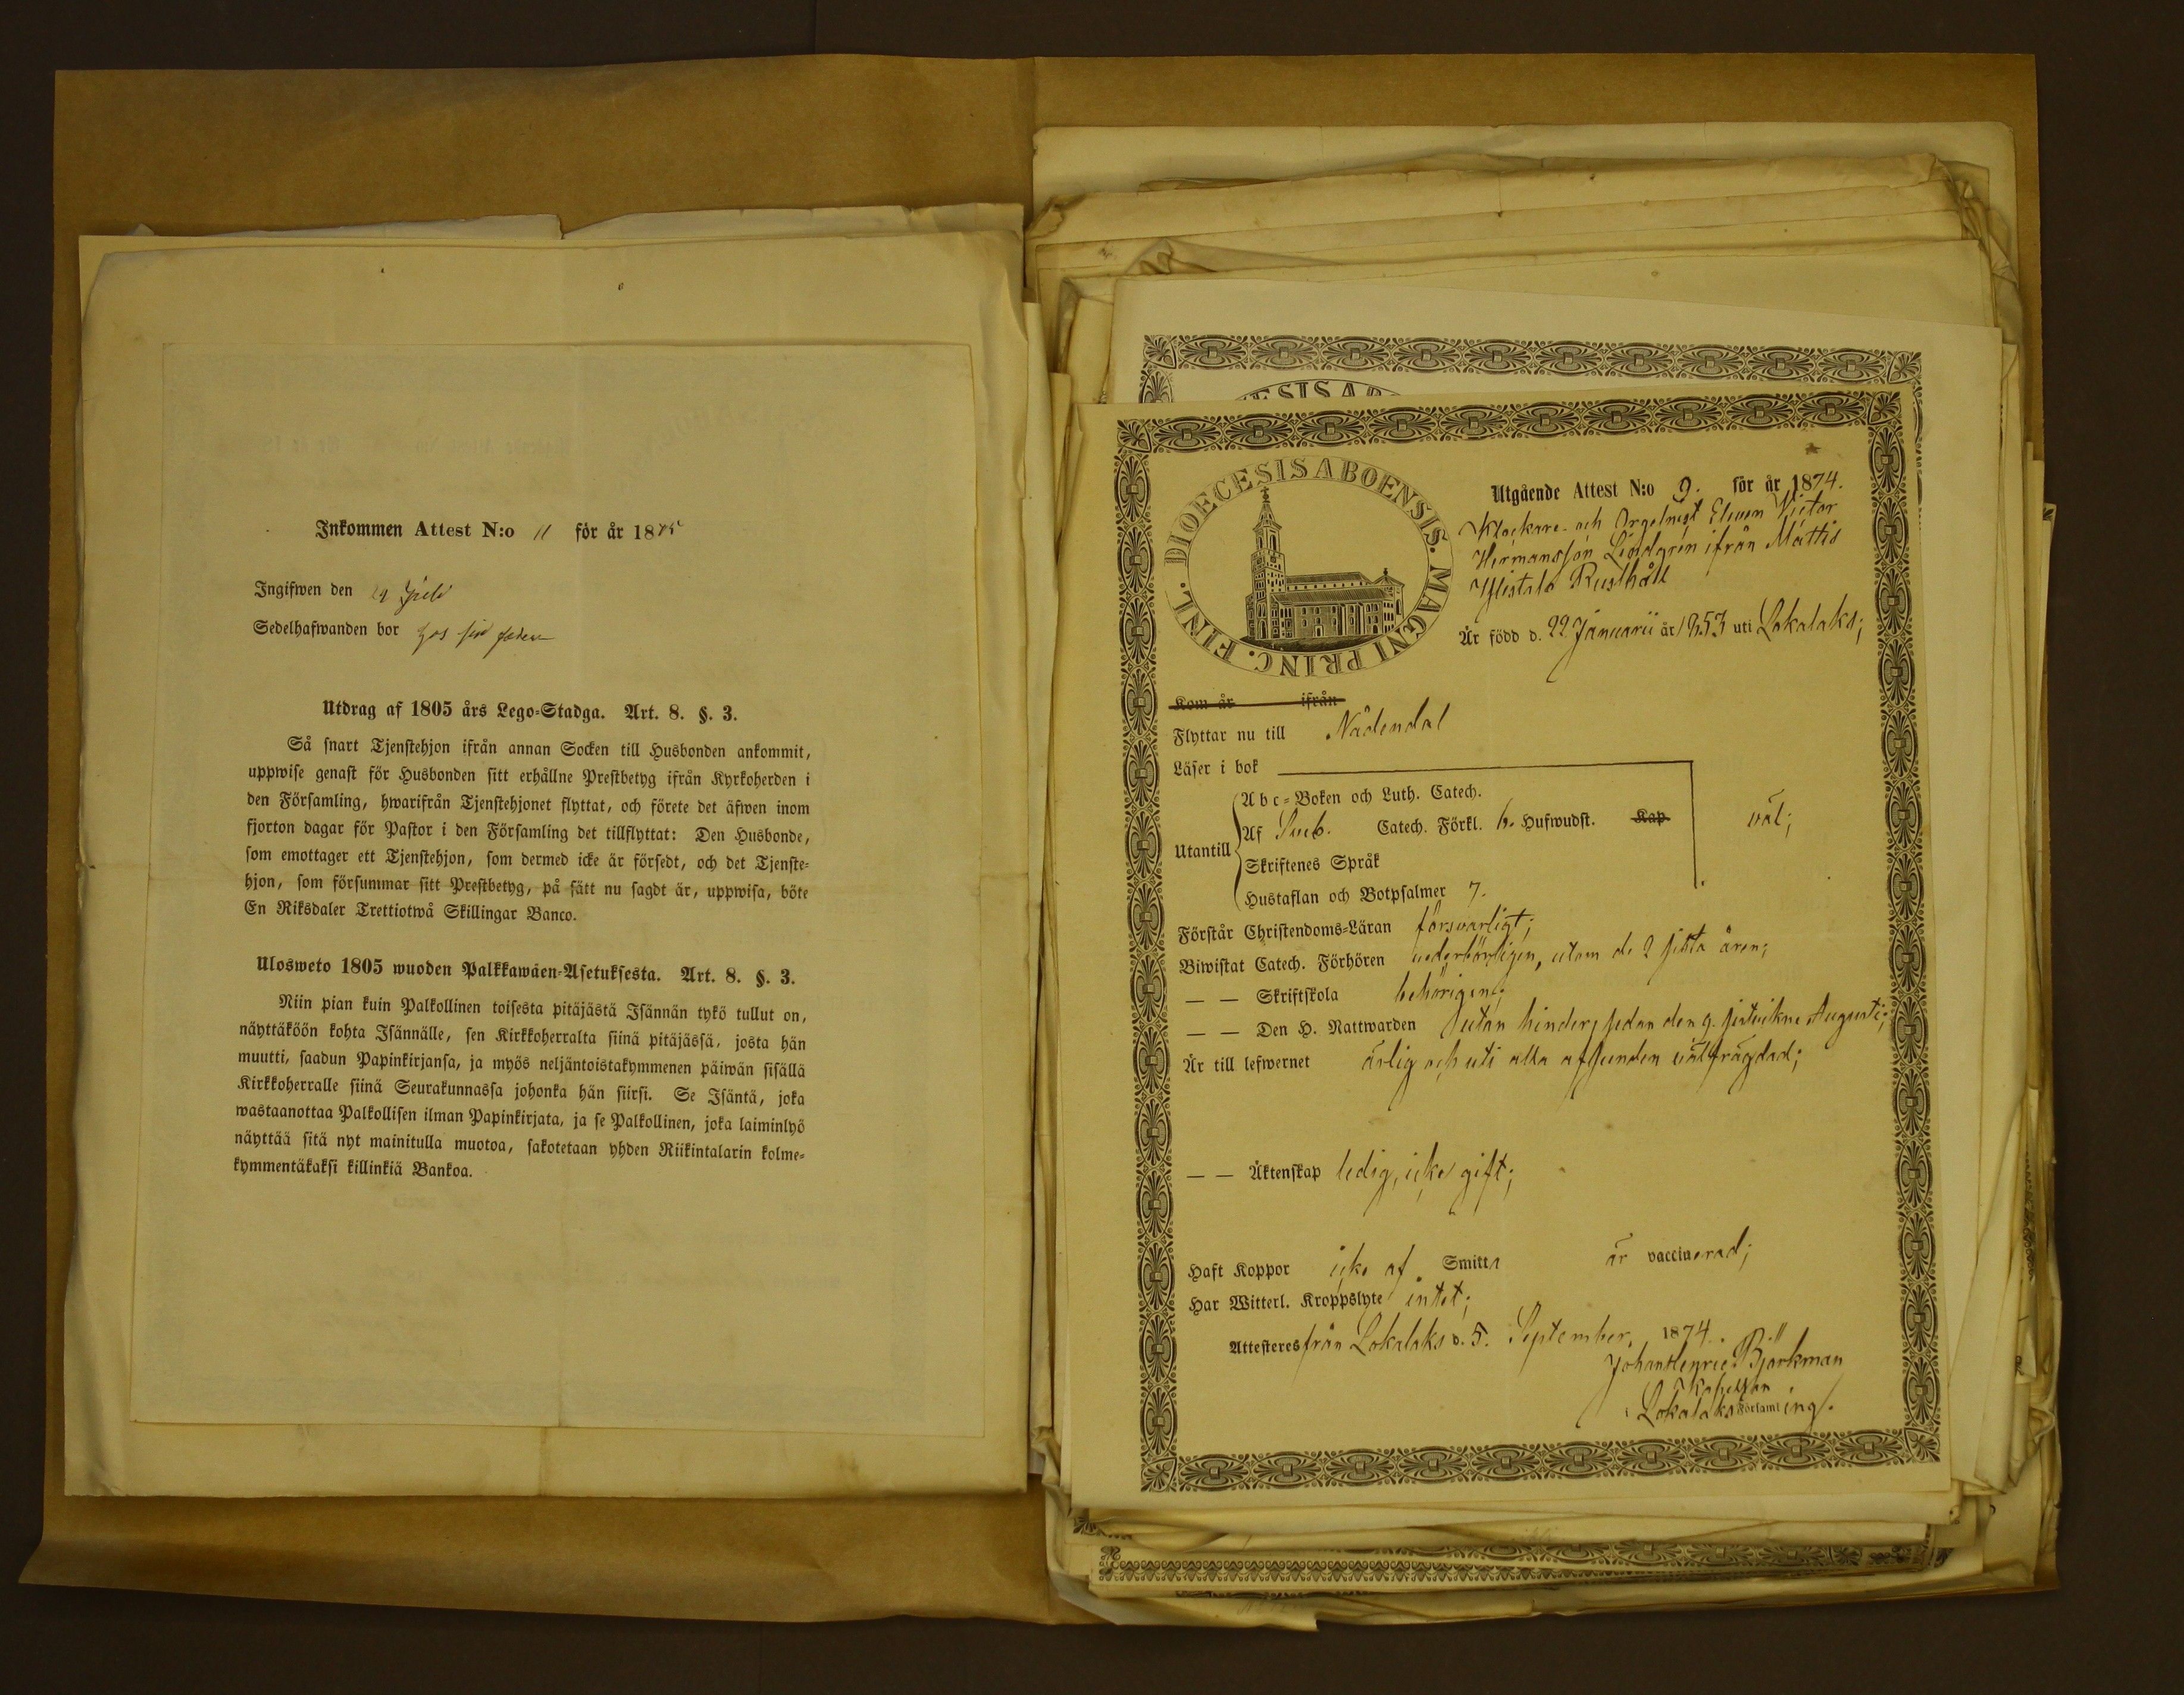 Inkommen Attest N:o 11 för år 1875
Ingifwen den 19 Juli
Sedelhafwanden bor hos sin fader
Utdrag af 1805 års Lego-Stadga. Art. 8. §. 3.
Så snart Tjenstehjon ifrån annan Socken till Husbonden ankommit,
uppwise genast för Husbonden sitt erhållne Prestbetyg ifrån Kyrkoherden i
den Församling, hwarifrån Tjenstehjonet flyttat, och förete det äfwen inom
fjorton dagar för Pastor i den Församling det tillflyttat: Den Husbonde,
som emottager ett Tjenstehjon, som dermed icke är försedt, och det Tjenste-
hjon, som försummar sitt Prestbetyg, på sätt nu sagdt är, uppwisa, böte
En Riksdaler Trettiotwå Skillingar Banco.
Ulosweto 1805 wuoden Palkkawäen-Asetuksesta. Art. 8. §. 3.
Niin pian kuin Palkollinen toisesta pitäjästä Isännän tykö tullut on,
näyttäköön kohta Isännälle, sen Kirkkoherralta siinä pitäjässä, josta hän
muutti, saadun Papinkirjansa, ja myös neljäntoistakymmenen päiwän sisällä
Kirkkoherralle siinä Seurakunnassa johonka hän siirsi. Se Isäntä, joka
wastaanottaa Palkollisen ilman Papinkirjata, ja se Palkollinen, joka laiminlyö
näyttää sitä nyt mainitulla muotoa, sakotetaan yhden Riikintalarin kolme-
kymmentäkaksi killinkiä Bankoa.
ESIS AB
DIOECESIS ABOENSIS. MAGNI PRINC. FINL.
Utgående Attest N:o 9. för år 1874.
Klockare- och Orgelnist Eleven Victor
Hermansson Lindgrén ifrån Mattis
Ylistalo Rusthåll
Är född d. 22 Januarii år 1853 uti Lokalaks;
Kom år ifrån
Flyttar nu till Nådendal
Läser i bok
Abc-Boken och Luth. Catech.
Utantill Af Sveb. Catech. Förkl. 6. Hufwudst. Kap. väl;
Skriftenes Språk
Hustaflan och Botpsalmer 7.
Förstår Christendoms-Läran försvarligt;
Biwistat Catech. Förhören vederbörligen, utom de 2 sista åren;
— — Skriftskola behörigen;
— — Den H. Nattwarden utan hinder, sedan den 9. sistvikne Augusti;
Är till lefwernet ärlig och uti alla afseenden välfrägdad;
— — Äktenskap ledig, icke gift;
Haft Koppor icke af Smitta är vaccinerad;
Har Witterl. Kroppslyte intet;
Attesteres från Lokalaks d. 5. September, 1874.
Johan Henric Björkman
Kapellan
i Lokalaks Församling.